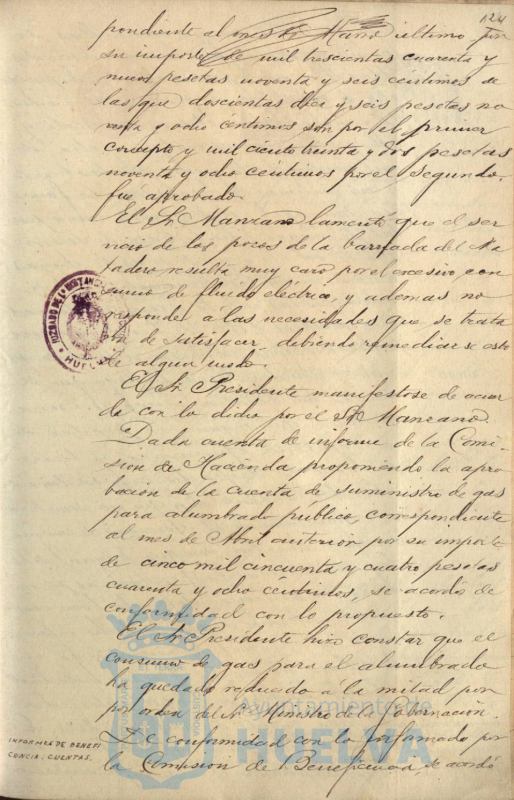 124
pondiente al mes de Marzo último por
su importe de mil trescientas cuarenta y
nueve pesetas noventa y seis céntimos de
las que doscientas diez y seis pesetas no
venta y ocho céntimos son por el primer
concepto y mil ciento treinta y dos pesetas
noventa y ocho centimos por el segundo,
fué aprobado.
El Sr. Manzano lamentó que el ser
vicio de los pozos de la barriada del Ma
tadero resulta muy caro por el excesivo con
sumo de fluido eléctrico, y ademas no
responder á las necesidades que se trata
de satisfacer, debiendo remediarse esto
de algun modo.
El Sr. Presidente manifestose de acuer
do con lo dicho por el Sr. Manzano.
Dada cuenta de informe de la Comi-
sion de Hacienda proponiendo la apro
bación de la cuenta de suministro de gas
para alumbrado publico, correspondiente
al mes de Abril anterior por su importe
de cinco mil cincuenta y cuatro pesetas
cuarenta y ocho céntimos, se acordó de
conformidad con lo propuesto.
El Sr. Presidente hizo constar que el
consumo de gas para el alumbrado
ha quedado reducido á la mitad por
orden del Sr. Ministro de la Gobernación.
INFORMES DE BENEFI
CENCIA. CUENTAS.
De conformidad con lo informado por
la Comision de Beneficencia, se acordó
HUELVA
Ayuntamiento de
HUELVA